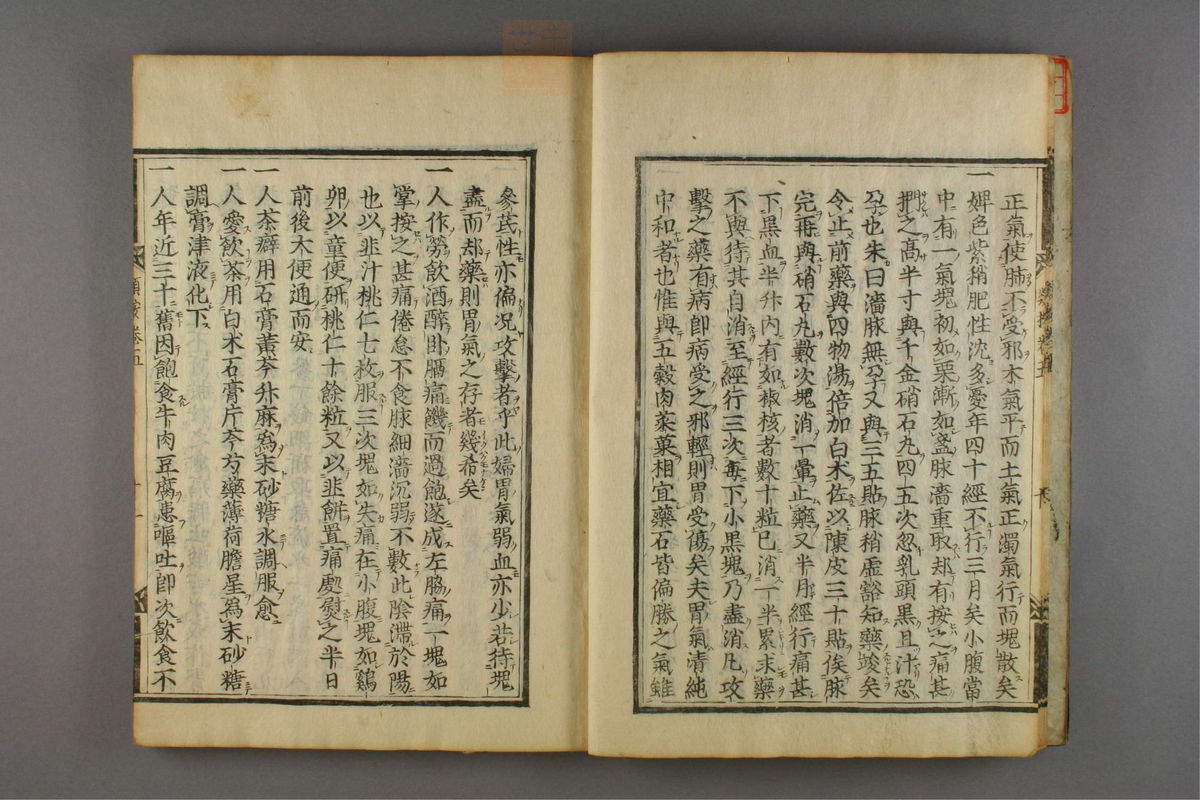 正氣使肺不受邪木氣平而土氣正濁氣行而塊散矣
一婢色紫稍肥性沈多憂年四十經不行三月矣小腹當
中有一氣塊初如栗漸如盞脉濇重取却有按之痛甚
捫之高半寸與千金硝石丸四五次忽乳頭黑且汁恐
孕也朱曰濇脉無孕又與三五貼脉稍虛豁知藥竣矣
令止前藥與四物湯倍加白朮佐以陳皮三十貼俟脉
完再與硝石丸數次塊消一暈止藥又半月經行痛甚
下黑血半升內有如椒核者數十粒已消一半累求藥
不與待其自消至經行三次每下小黑塊乃盡消凡攻
擊之藥有病卽病受之邪輕則胃受傷矣夫胃氣清純
中和者也惟與五穀肉菜菓相宜藥石皆偏勝之氣雖
參芪性亦偏况攻擊者乎此婦胃氣弱血亦少若待塊
盡而却藥則胃氣之存者幾希矣
一人作勞飲酒醉卧膈痛饑而過飽遂成左脇痛一塊如
掌按之甚痛倦怠不食脉細濇沉弱不數此陰滯於陽
也以韭汁桃仁七枚服三次塊如失痛在小腹塊如鷄
卵以童便研桃仁十餘粒又以韭餅置痛處熨之半日
前後大便通而安
一人茶癖用石膏黃芩升麻爲末砂糖水調服愈
一人愛飲茶用白朮石膏片芩芍藥薄荷膽星爲末砂糖
調膏津液化下
一人年近三十舊因飽食牛肉豆腐患嘔吐卽次飲食不